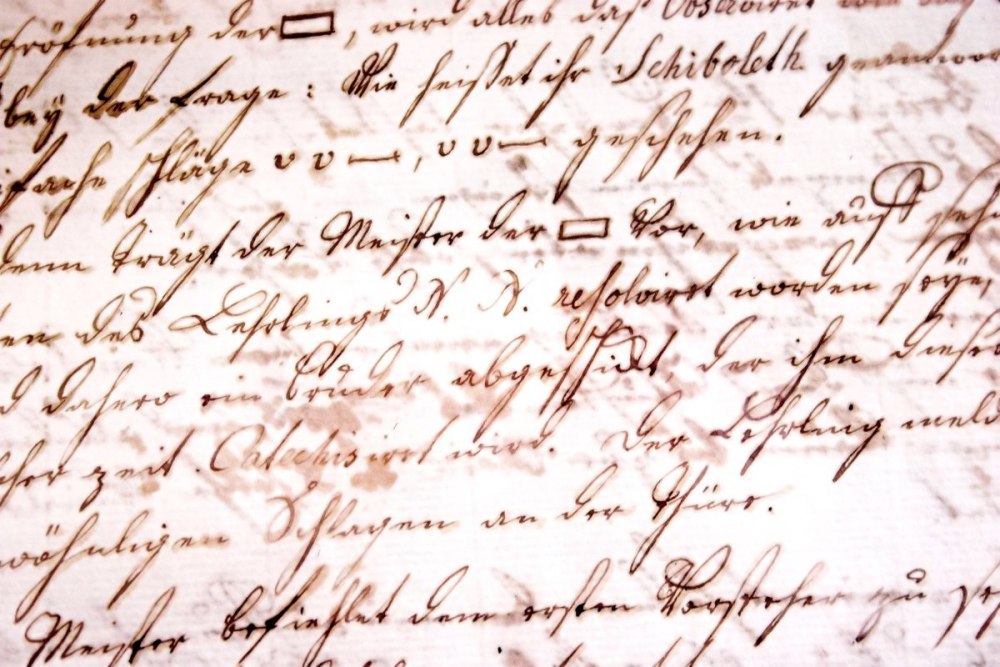 eröfnung der ▭, wird alles das Observiret
bey der frage: Wie heisset ihr Schiboleth
fache schläge υ υ —, υ υ — geschehen.
denn trägt der Meister der ▭ Vor, wie auf
des Lehrlings N. N. resolviret worden seye,
dahero ein Bruder abgeschikt, der ihm dieses
zeit Catechisiret wird. Der Lehrling
wöhnligen Schlagen an der Thüre.
Meister befiehlet dem ersten Vorsteher zu